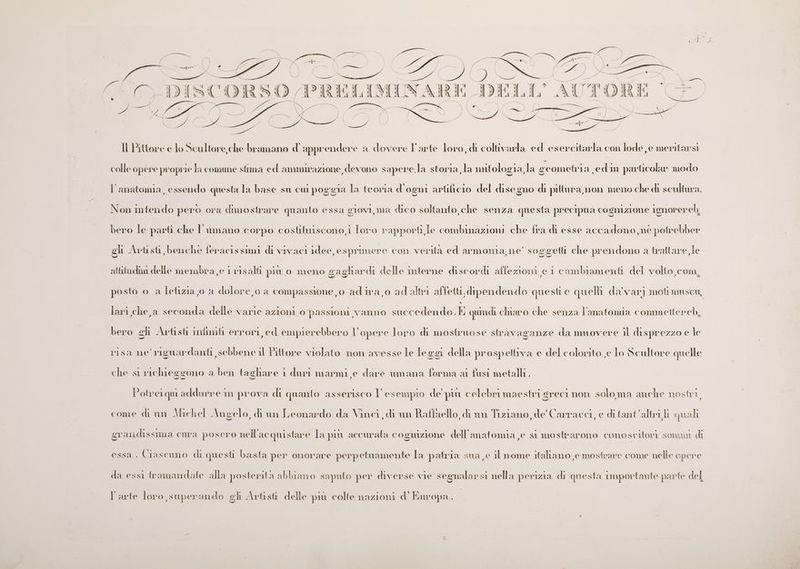 N.º 2.
DISCORSO PRELIMINARE DELL' AUTORE
Il Pittore e lo Scultore, che bramano d'apprendere a dovere l'arte loro, di coltivarla ed esercitarla con lode, e meritarsi
colle opere proprie la comune stima ed ammirazione, devono sapere la storia, la mitologia, la geometria, ed in particolar modo
l'anatomia, essendo questa la base su cui poggia la teoria d'ogni artificio del disegno di pittura, non meno che di scultura.
Non intendo però ora dimostrare quanto essa giovi, ma dico soltanto, che senza questa precipua cognizione ignorereb,
bero le parti che l'umano corpo costituiscono, i loro rapporti, le combinazioni che fra di esse accadono, nè potrebber
gli Artisti, benchè feracissimi di vivaci idee, esprimere con verità ed armonia, ne' soggetti che prendono a trattare, le
attitudini delle membra, e i risalti più o meno gagliardi delle interne discordi affezioni, e i cambiamenti del volto, com,
posto o a letizia, o a dolore, o a compassione, o ad ira, o ad altri affetti, dipendendo questi e quelli da' varj moti muscu,
lari, che, a seconda delle varie azioni o passioni, vanno succedendo. È quindi chiaro che senza l'anatomia commettereb,
bero gli Artisti infiniti errori, ed empierebbero l'opere loro di mostruose stravaganze da muovere il disprezzo e le
risa ne' riguardanti, sebbene il Pittore violato non avesse le leggi della prospettiva e del colorito, e lo Scultore quelle
che si richieggono a ben tagliare i duri marmi, e dare umana forma ai fusi metalli.
Potrei qui addurre in prova di quanto asserisco l'esempio de' più celebri maestri greci non solo, ma anche nostri,
come di un Michel Angelo, di un Leonardo da Vinci, di un Raffaello, di un Tiziano, de' Carracci, e di tant' altri, li quali
grandissima cura posero nell'acquistare la più accurata cognizione dell'anatomia, e si mostrarono conoscitori sommi di
essa. Ciascuno di questi basta per onorare perpetuamente la patria sua, e il nome italiano, e mostrare come nelle opere
da essi tramandate alla posterità abbiano saputo per diverse vie segnalarsi nella perizia di questa importante parte del,
l'arte loro, superando gli Artisti delle più colte nazioni d'Europa.